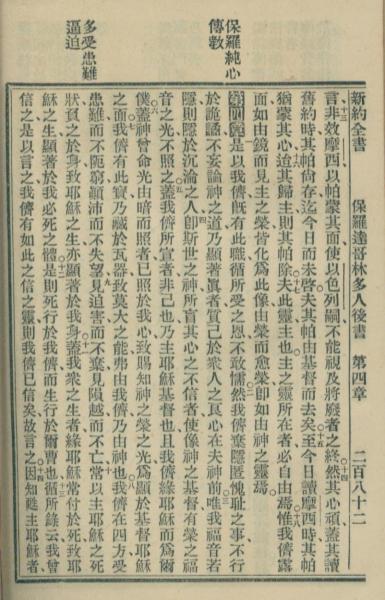 新約全書　保羅達哥林多人後書　第四章　二百八十二
言非效摩西以帕蒙其面使以色列嗣不能視及將廢者之終然其心頑蓋其讀
舊約時其帕尚存迄今日而未啓夫其帕由基督而去矣至今日讀摩西時其帕
猶蒙其心迨其歸主則其帕除夫此靈主也主之靈所在者必自由焉惟我儕露
面如由鏡而見主之榮皆化爲此像由榮而愈榮卽如由神之靈焉
保羅純心
傳教
第四章是以我儕旣有此職循所受之恩不敢懦然我儕棄隱匿愧耻之事不行
於詭譎不妄論神之道乃顯著眞者質己於衆人之良心在夫神前唯我福音若
隱則隱於沉淪之人卽斯世之神所盲其心之不信者使像神之基督有榮之福
音之光不照之蓋我儕所宣者非己也乃主耶穌基督也且我儕緣耶穌而爲爾
僕蓋神曾命光由暗而照者已照於我心致賜知神之榮之光爲顯於基督耶穌
之面我儕有此寶乃藏於瓦器致莫大之能弗由我儕乃由神也我儕在四方受
多受患難
逼迫
患難而不阨窮顚沛而不失望見迫害而不棄見隕越而不亡常以主耶穌之死
狀負之於身致耶穌之生亦顯著於我身蓋我衆之生者緣耶穌常付於死致耶
穌之生顯著於我必死之體是則死行於我儕而生行於爾曹也循所錄云我曾
信之是以言之我儕有如此之信之靈則我儕已信矣故言之因知甦主耶穌者
十三
十四
十五
十六
十七
十八
二
三
四
五
六
七
八
九
十
十一
十二
十三
十四